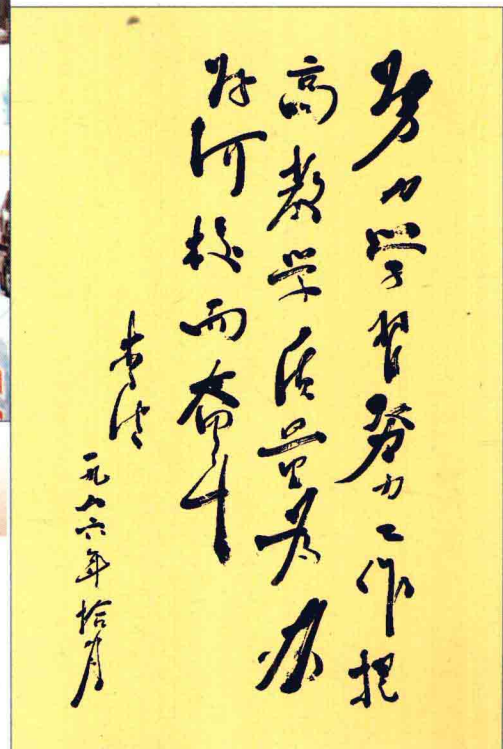 努力学習努力工作提
高教学质量为办
好河校而奋斗
李
一九八六年拾月